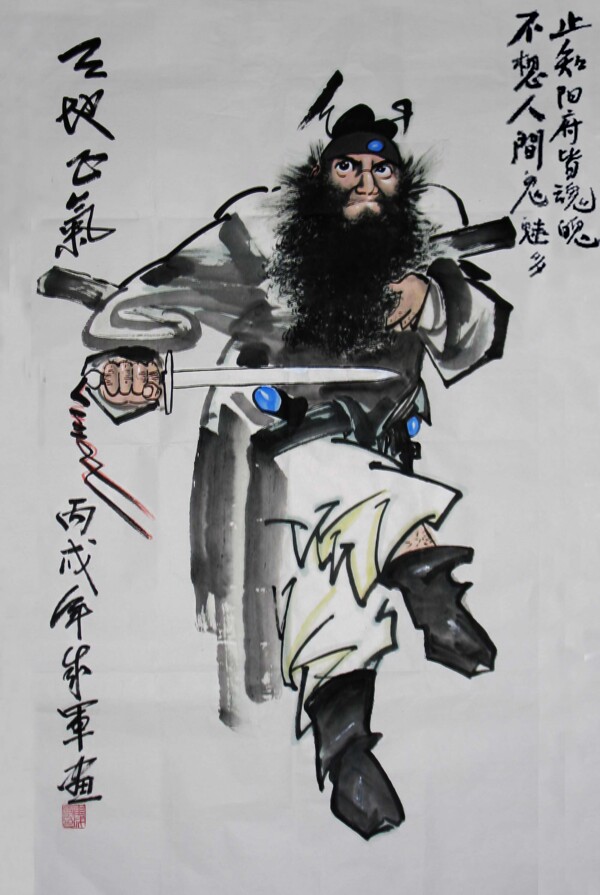 止知阳府皆魂魄
不想人間鬼魅多
天地正氣
丙戌年軍畫